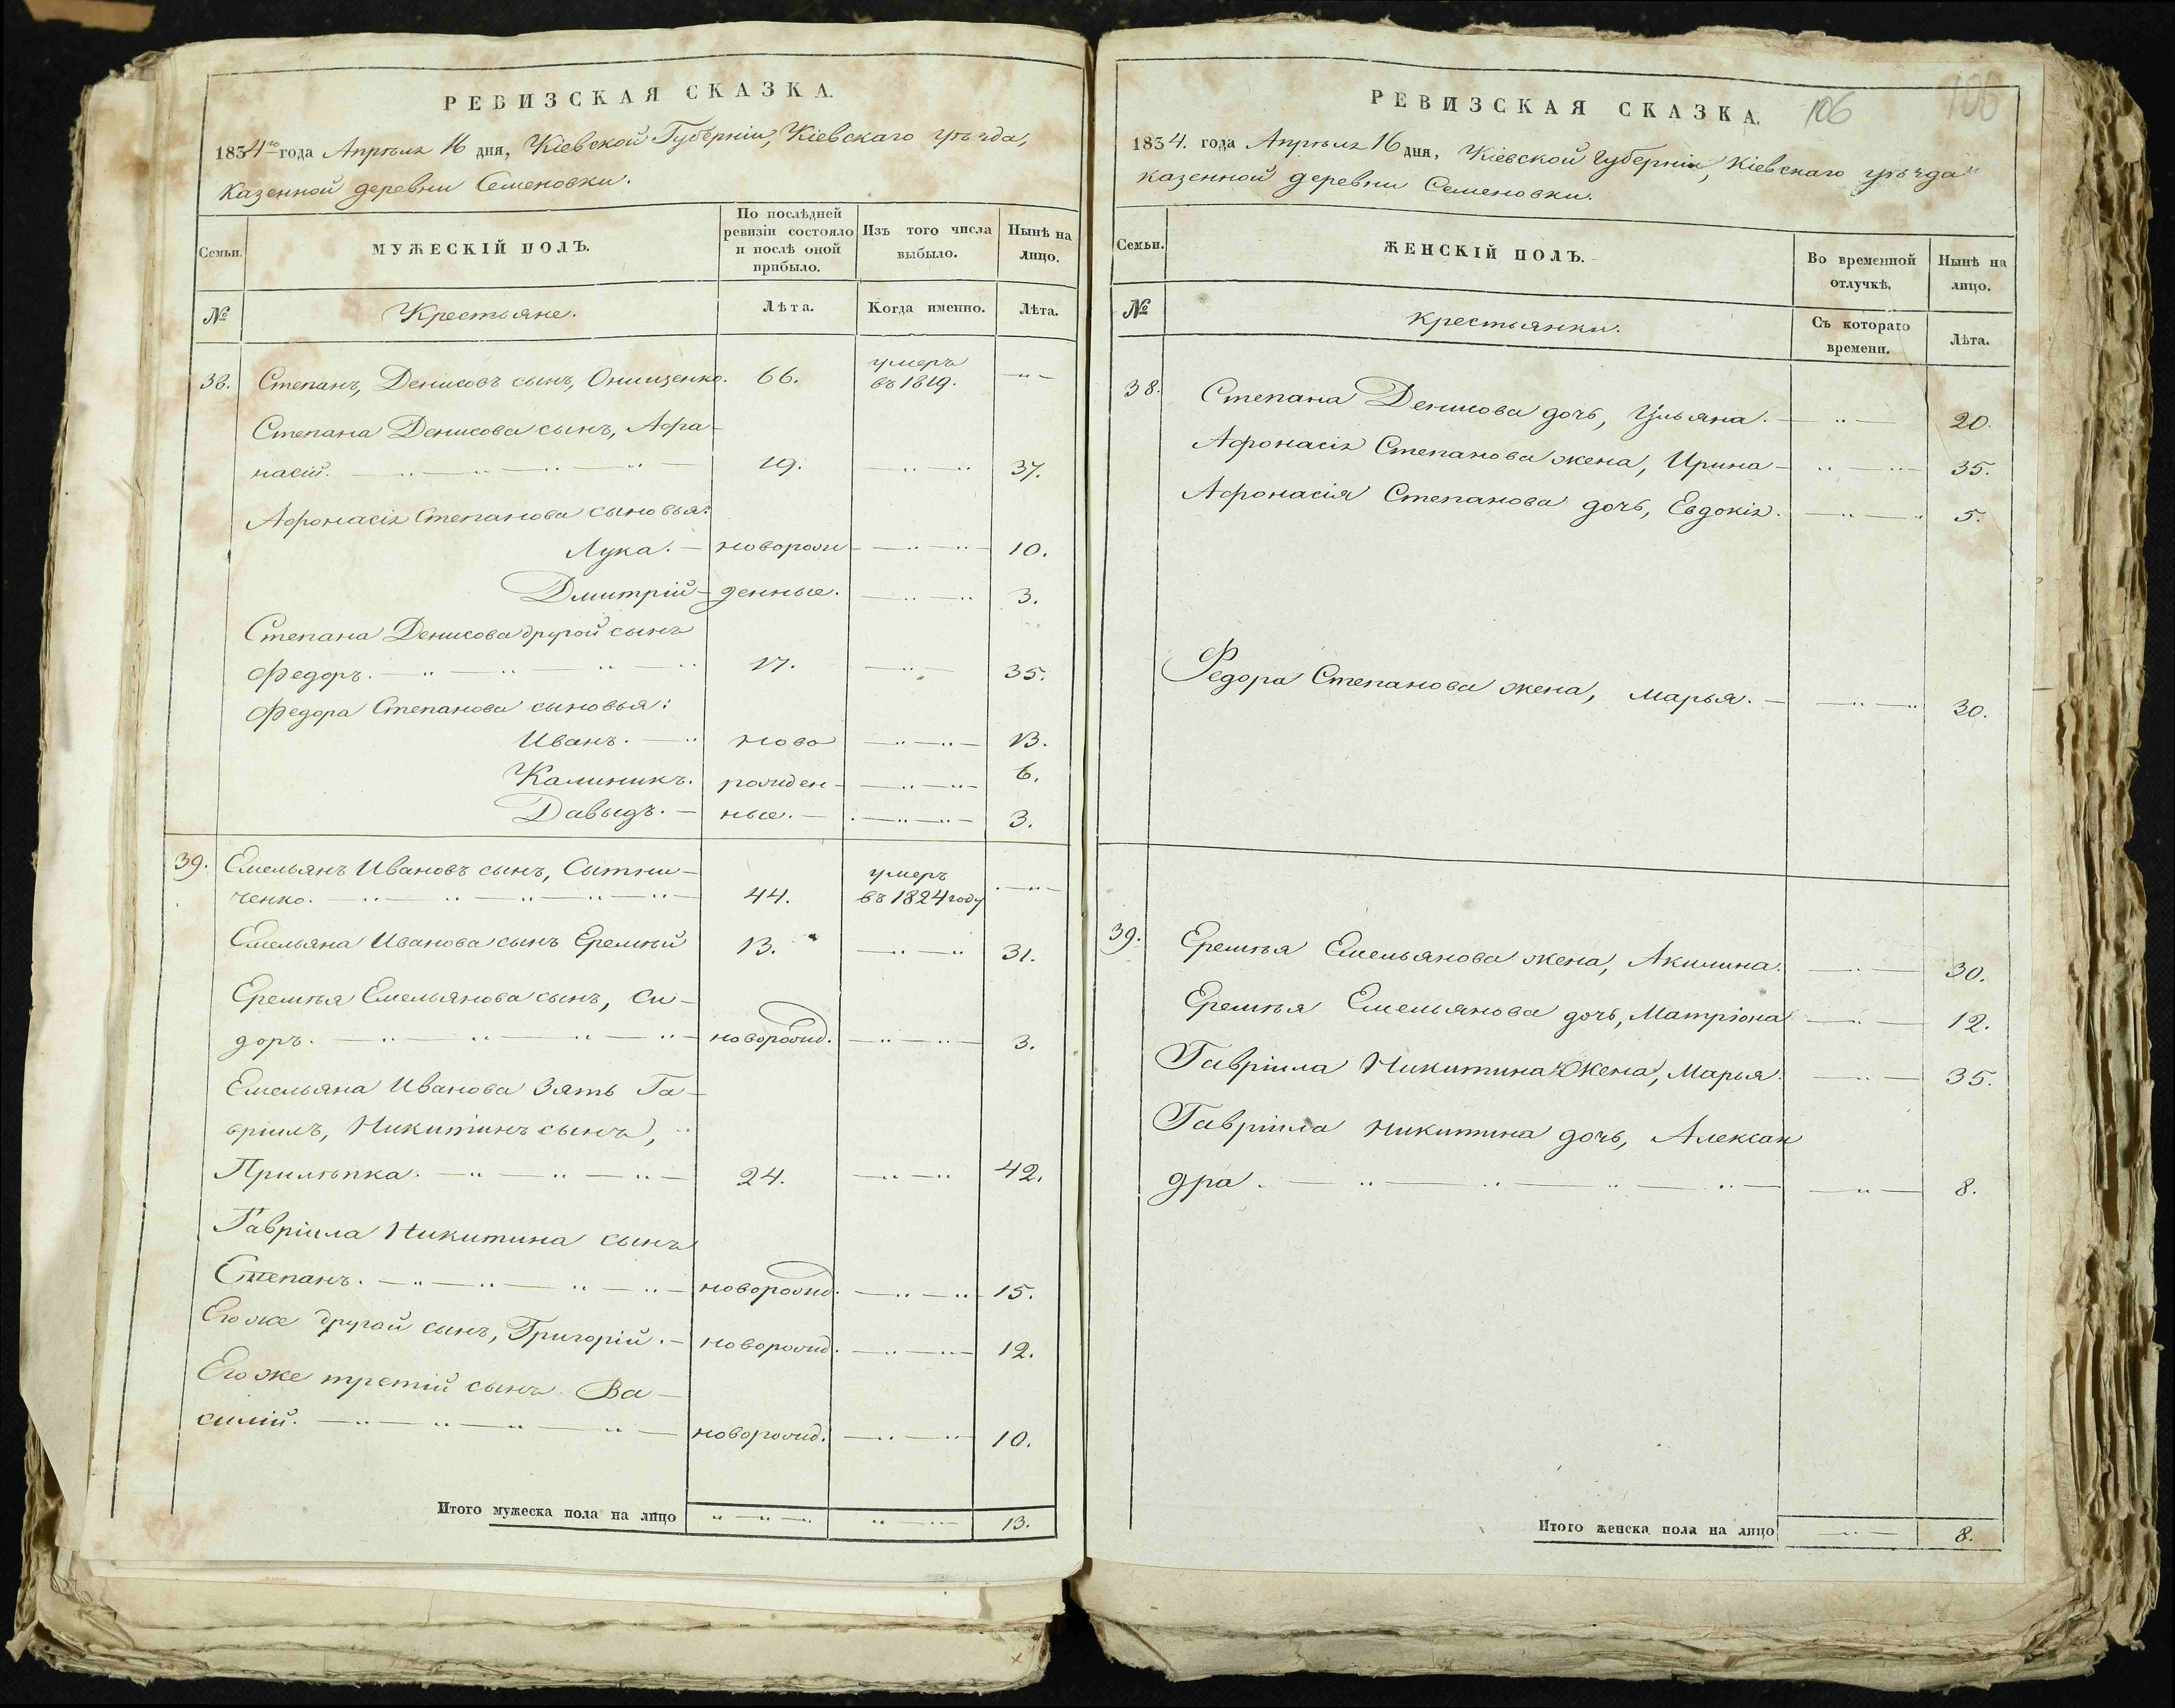 РЕВИЗСКАЯ СКАЗКА.
1834го года Апрѣля 16 дня, Кіевской Губерніи, Кіевскаго уѣзда,
Казенной деревни Семеновки.
Семьи.
МУЖЕСКІЙ ПОЛЪ.
По послѣдней
ревизіи состояло
и послѣ оной
прибыло.
Изъ того числа
выбыло.
Нынѣ на
лицо.
№
Крестьяне.
Лѣта.
Когда именно.
Лѣта.
38. Степанъ, Денисовъ сынъ, Онищенко. 66. умеръ
въ 1819.
Степана Денисова сынъ, Афа-
насій. 19. 37.
Афонасія Степанова сыновья:
Лука. — новорож- 10.
Дмитрій — денные. 3.
Степана Денисова другой сынъ
Федоръ. 17. 35.
Федора Степанова сыновья:
Иванъ. ново 13.
Калиникъ. рожден- 6.
Давыдъ. — ные. 3.
39. Емельянъ Ивановъ сынъ, Сытни-
ченко. 44. умеръ
въ 1824 году
Емельяна Иванова сынъ Еремѣй 13. 31.
Еремѣя Емельянова сынъ, Си-
доръ. новорожд. 3.
Емельяна Иванова Зять Га-
вріилъ, Никитинъ сынъ,
Прилѣпка. 24. 42.
Гавріила Никитина сынъ
Степанъ. новорожд. 15.
Его же другой сынъ, Григорій. — новорожд. 12.
Его же третій сынъ Ва-
силій. новорожд. 10.
Итого мужеска пола на лицо 13.
РЕВИЗСКАЯ СКАЗКА. 106 106
1834. года Апрѣля 16 дня, Кіевской Губерніи, Кіевскаго уѣзда
казенной деревни Семеновки.
Семьи.
ЖЕНСКІЙ ПОЛЪ.
Во временной
отлучкѣ.
Нынѣ на
лицо.
№
крестьянки.
Съ котораго
времени.
Лѣта.
38. Степана Денисова дочь, Ульяна. 20.
Афонасія Степанова жена, Ирина 35.
Афонасія Степанова дочь, Евдокія. 5.
Федора Степанова жена, Марья. 30.
39. Еремѣя Емельянова жена, Акилина. 30.
Еремѣя Емельянова дочь, Матріона 12.
Гавріила Никитина Жена, Марья 35.
Гавріила Никитина дочь, Алексан
дра. 8.
Итого женска пола на лицо 8.